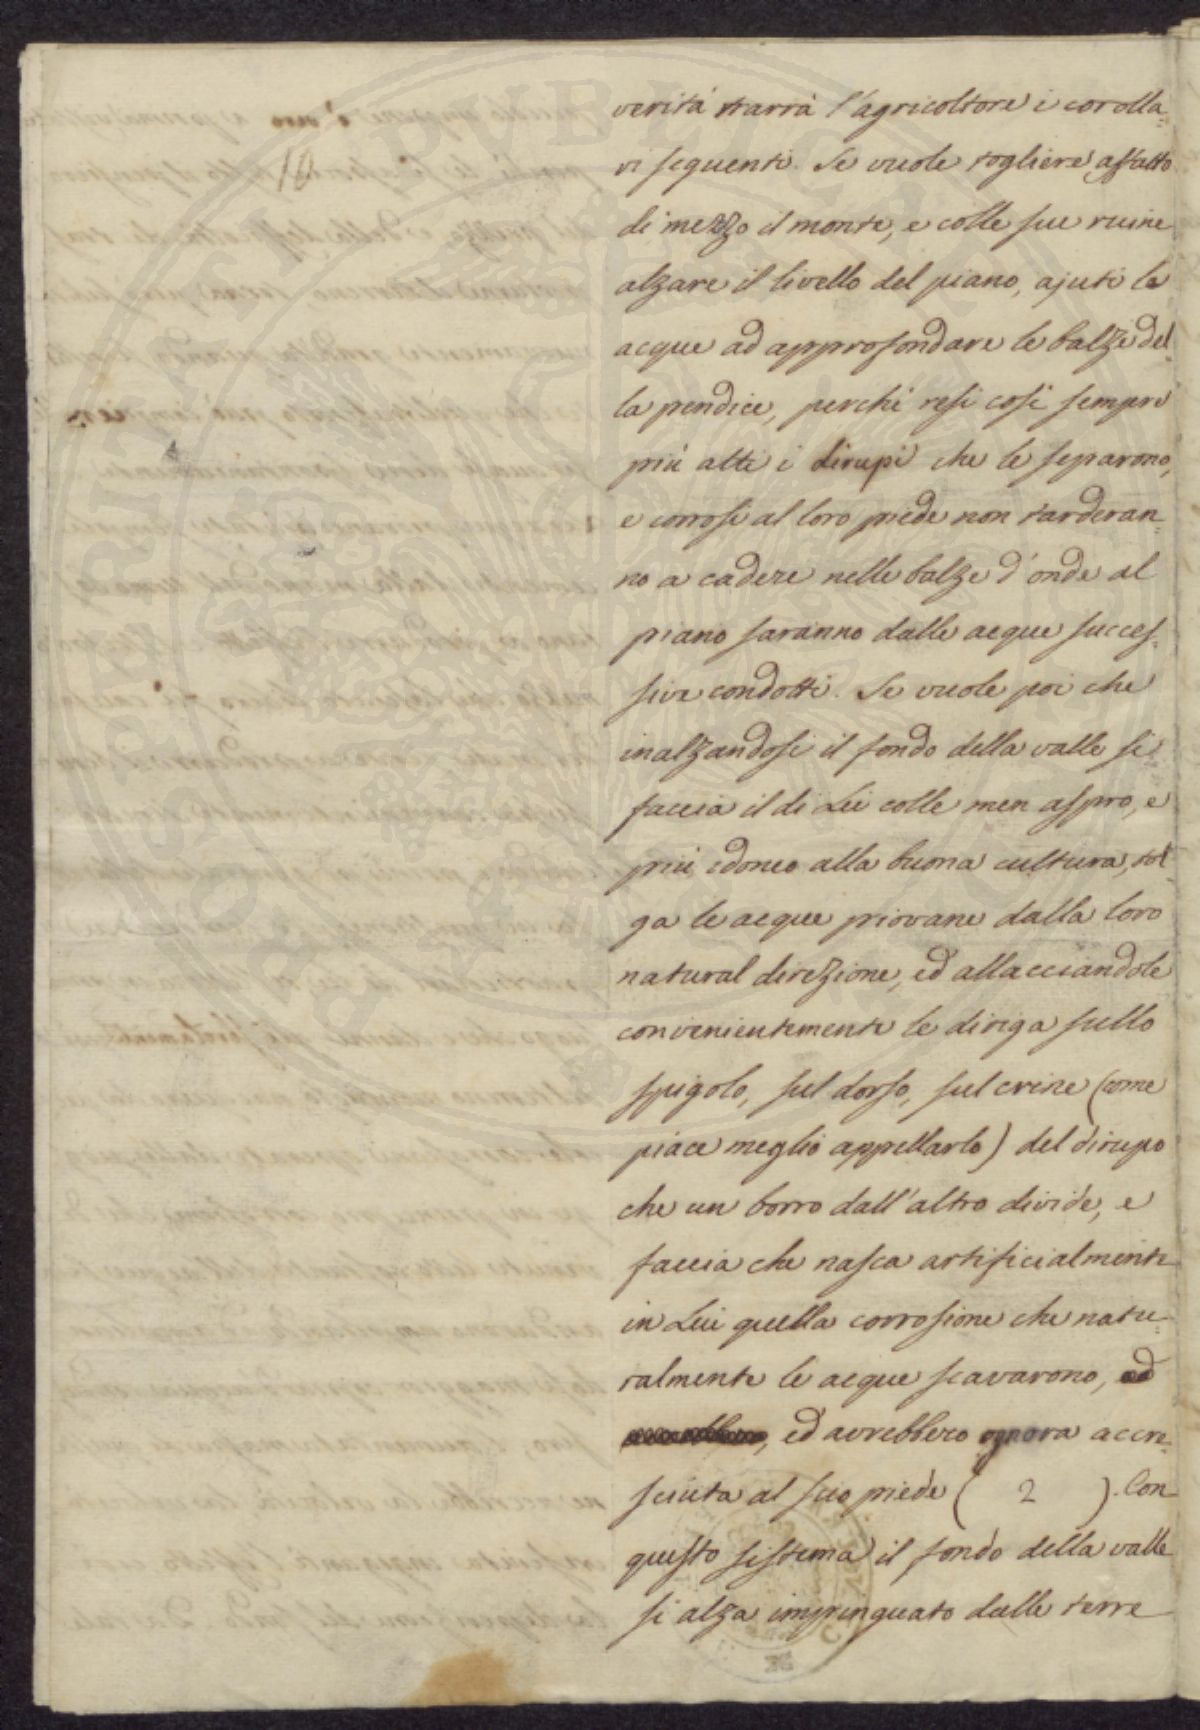 verità trarrà l'agricoltore i corolla-
ri seguenti. Se vuole togliere affatto
di mezzo il monte, e colle sue ruine
alzare il livello del piano, ajuti le
acque ad approfondare le balze del-
la pendice, perchè resi così sempre
più alti i dirupi che le separono,
e corrosi al loro piede non tarderan-
no a cadere nelle balze d'onde al
piano saranno dalle acque succes-
sive condotti. Se vuole poi che
inalzandosi il fondo della valle si
faccia il di Lui colle men aspro, e
più idoneo alla buona cultura, tol-
ga le acque piovane dalla loro
natural direzione, ed allacciandole
convenientemente le diriga sullo
spigolo, sul dorso, sul crine (come
piace meglio appellarlo) del dirupo
che un borro dall'altro divide, e
faccia che nasca artificialmente
in Lui quella corrosione che natu-
ralmente le acque scavarono, ed
, ed avrebbero ognora accre-
sciuta al suo piede ( 2 ). Con
questo sistema il fondo della valle
si alza impinguato dalle terre
10